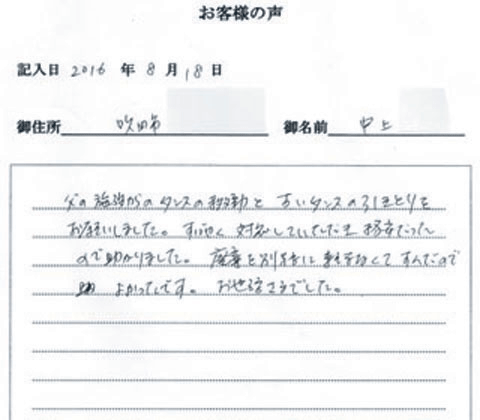 お客様の声
記入日 2016 年 8 月 18 日
御住所 吹田市 御名前 中上
父の 施設からのタンスの移動と 古いタンスの引きとりを
お願いしました。すばやく 対応していただき
ので助かりました。 廃棄を別手に なくて すんだので
助 よかったです。 お世話さまでした。